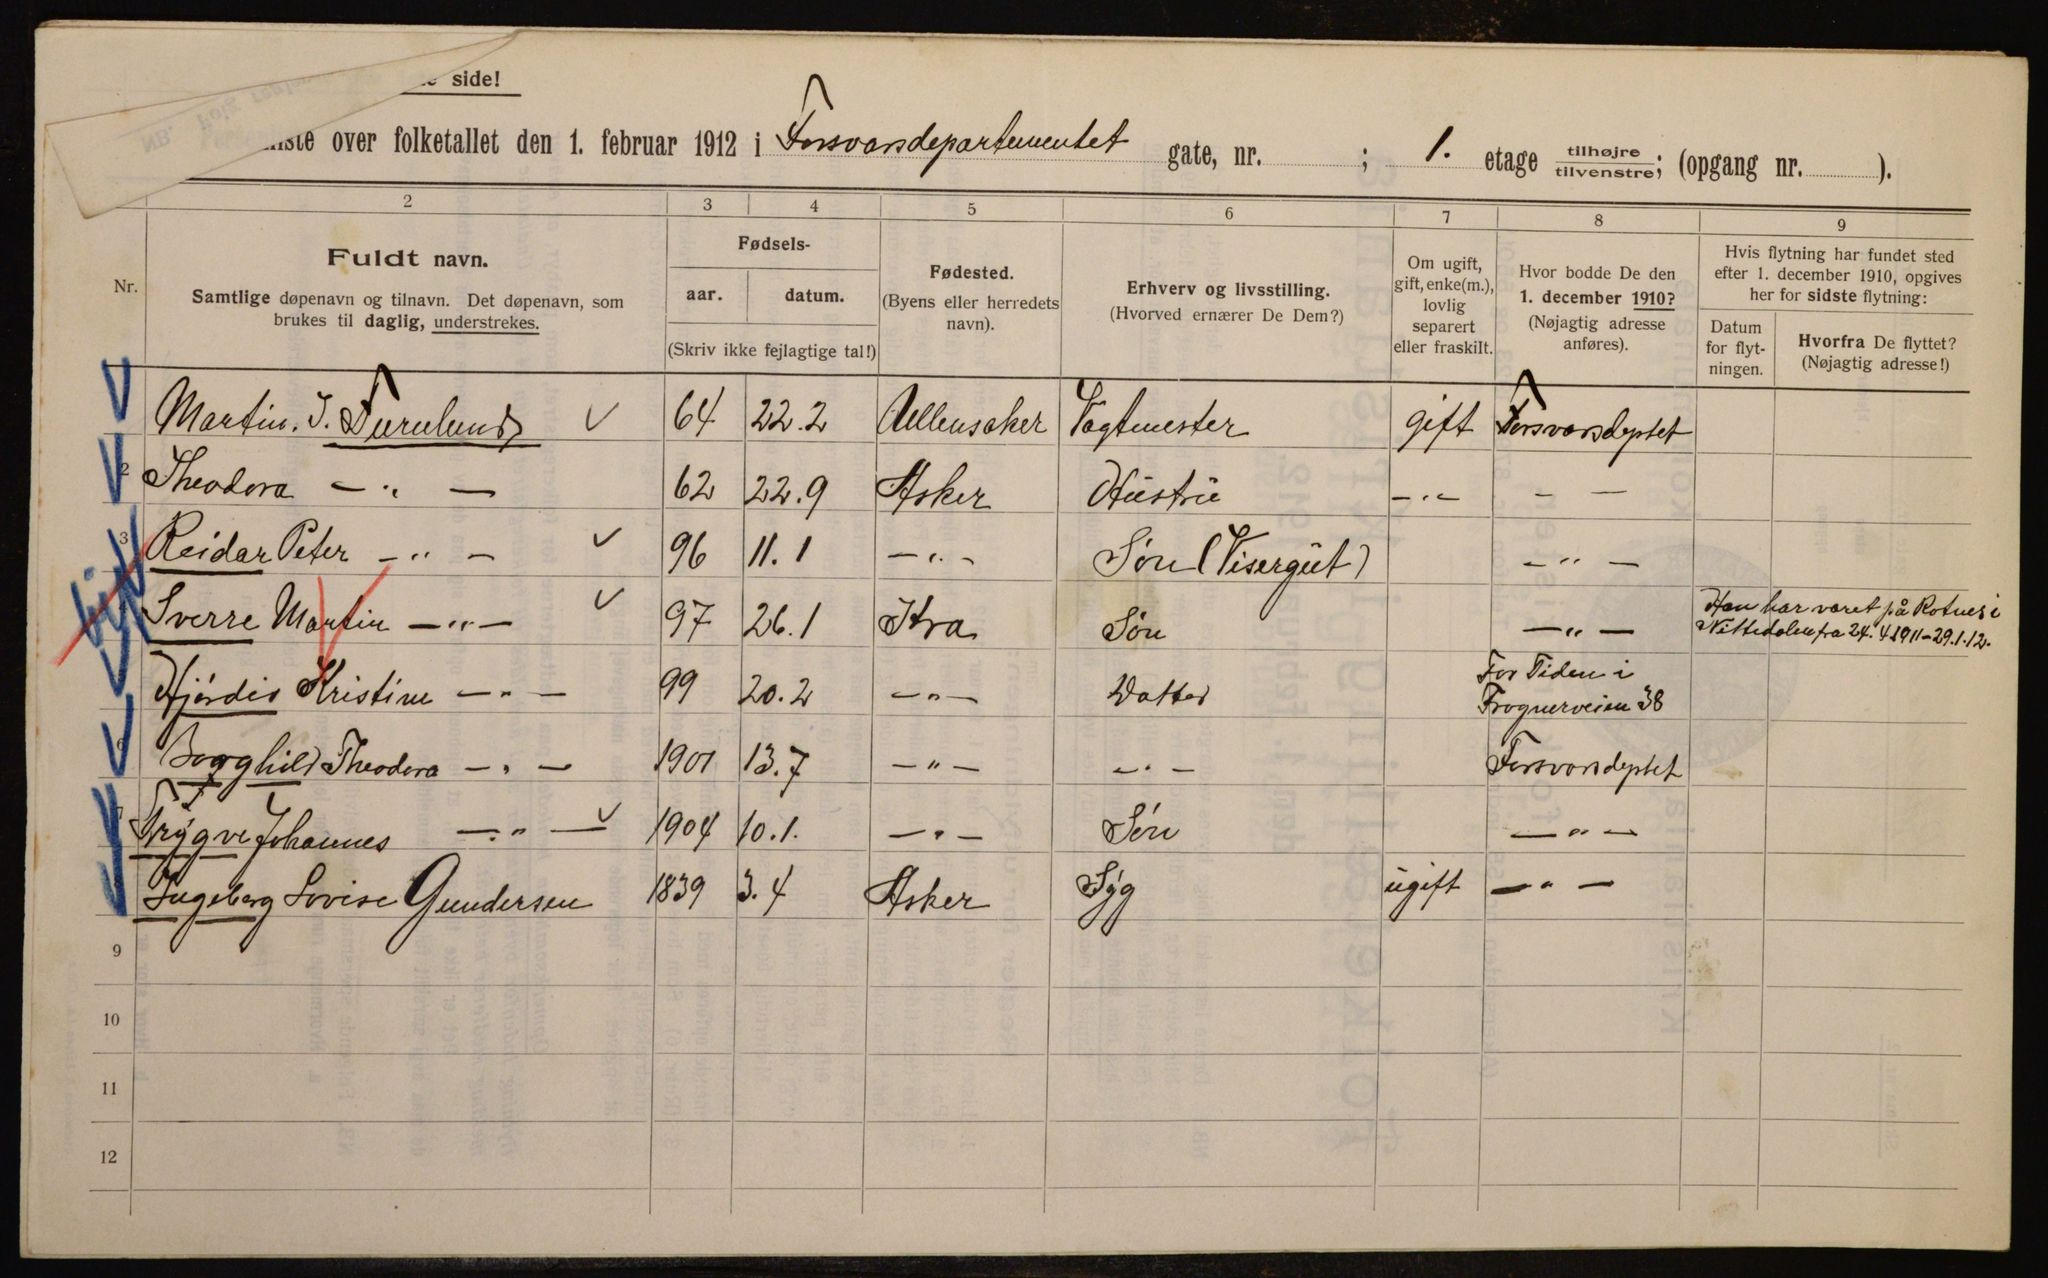 side!
liste over folketallet den 1. februar 1912 i Forsvarsdepartementet gate, nr. ; 1. etage tilhøjre tilvenstre; (opgang nr. ).
2 3 4 5 6 7 8 9
Nr.
Fuldt navn.
Samtlige døpenavn og tilnavn. Det døpenavn, som
brukes til daglig, understrekes.
Fødsels-
aar. datum.
(Skriv ikke fejlagtige tal!)
Fødested.
(Byens eller herredets
navn).
Erhverv og livsstilling.
(Hvorved ernærer De Dem?)
Om ugift,
gift, enke(m.),
lovlig
separert
eller fraskilt.
Hvor bodde De den
1. december 1910?
(Nøjagtig adresse
anføres).
Hvis flytning har fundet sted
efter 1. december 1910, opgives
her for sidste flytning:
Datum
for flyt-
ningen.
Hvorfra De flyttet?
(Nøjagtig adresse!)
Martin. J. Furulund 64 22.2 Ullensaker Vagtmester gift Forsvarsdeptet
2 Theodora — „ — 62 22.9 Asker Hustru — „ — — —
3 Reidar Peter — „ — 96 11.1 — „ — Søn (Visergut) — „ —
4 Sverre Martin — „ — 97 26.1 Kra Søn — „ — Han har været på Rotnes i
Nittedalen fra 24.4 1911 – 29.1.12.
Hjördis Kristine — „ — 99 20.2 — „ — Datter For Tiden i
Frognerveien 38
6 Borghild Theodora — „ — 1901 13.7 — „ — — „ — Forsvarsdeptet
7 Trygve Johannes — „ — 1904 10.1. — „ — Søn — „ —
8 Ingeborg Lovise Gundersen 1839 3.4 Asker Syg ugift — „ —
9
10
11
12